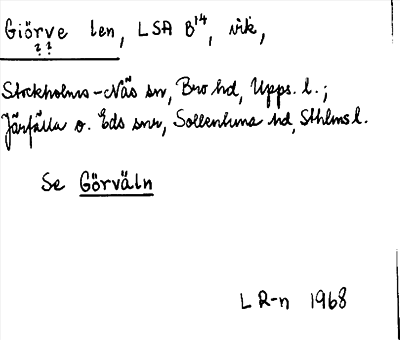 Giörve len, LSA B14, vik,
? ?
Stockholms-Näs sn, Bro hd, Upps. l.;
Järfälla o. Eds snr, Sollentuna hd, Sthlms l.
Se Görväln
L R-n 1968